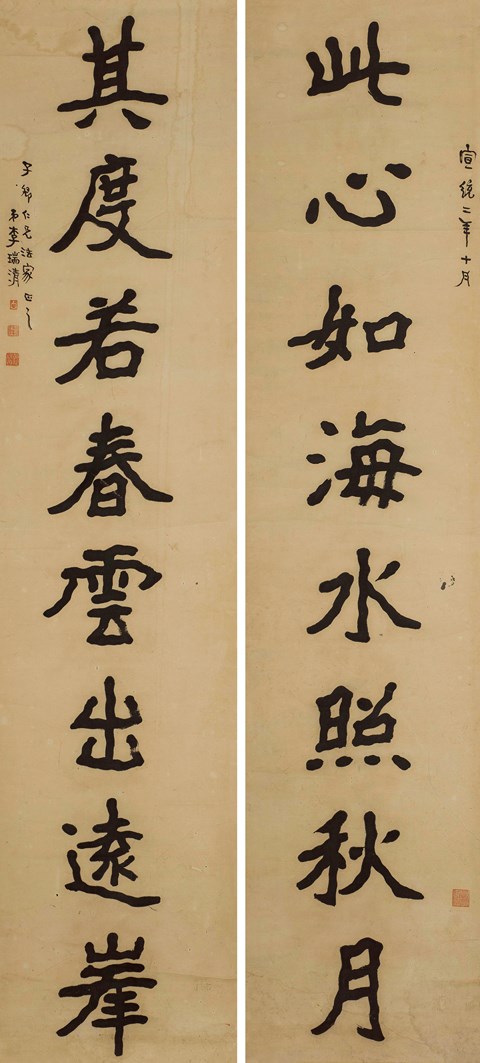 宣統二年十月
此心如海水照秋月
其度若春雲出遠峯
子卿仁兄法家正之
弟李瑞清